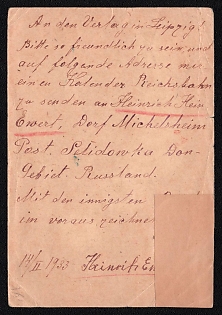 An den Verlag in Leipzig!
Bitte so freundlich zu sein und
auf folgende Adresse mir
einen Kalender Reichsbahn
zu senden an Heinrich Hein
Ewert, Dorf Michelsheim
Post. Selidowka Don-
Gebiet. Russland.
Mit den innigsten
im voraus zeichne
Heinrich